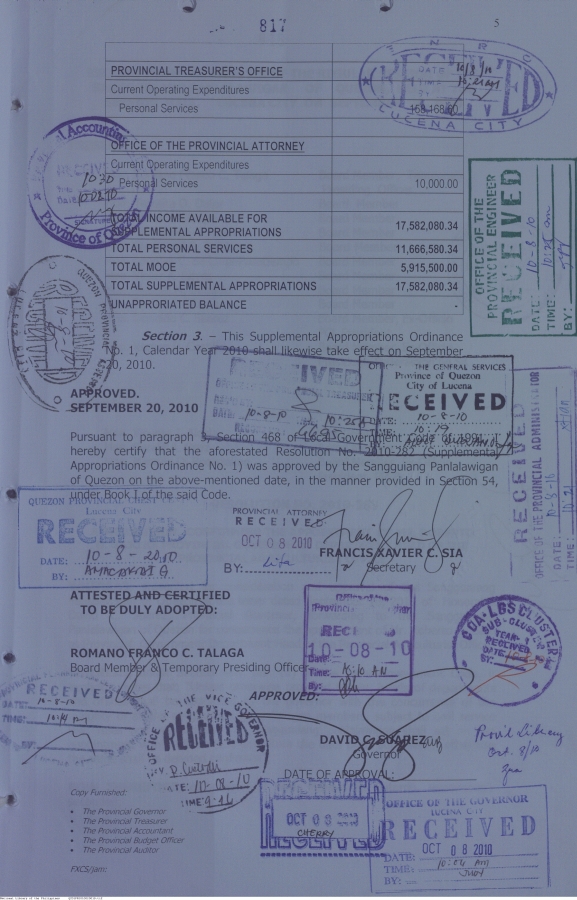 817
5
PROVINCIAL TREASURER'S OFFICE
Current Operating Expenditures
Personal Services 168,168.60
OFFICE OF THE PROVINCIAL ATTORNEY
Current Operating Expenditures
Personal Services 10,000.00
TOTAL INCOME AVAILABLE FOR
SUPPLEMENTAL APPROPRIATIONS 17,582,080.34
TOTAL PERSONAL SERVICES 11,666,580.34
TOTAL MOOE 5,915,500.00
TOTAL SUPPLEMENTAL APPROPRIATIONS 17,582,080.34
UNAPPRORIATED BALANCE -
RECEIVED
LUCENA CITY
DATE 10/8/10
Accounting
Province of
OFFICE OF THE
PROVINCIAL ENGINEER
RECEIVED
DATE: 10-8-10
TIME: 10:25 am
BY:
Section 3. – This Supplemental Appropriations Ordinance
No. 1, Calendar Year 2010 shall likewise take effect on September
20, 2010.
APPROVED.
SEPTEMBER 20, 2010
RECEIVED
10-8-10
THE GENERAL SERVICES
Province of Quezon
City of Lucena
RECEIVED
10-8-10
TIME: 10:19
Pursuant to paragraph 3, Section 468 of Local Government Code of 1991, I
hereby certify that the aforestated Resolution No. 2010-282 (Supplemental
Appropriations Ordinance No. 1) was approved by the Sangguiang Panlalawigan
of Quezon on the above-mentioned date, in the manner provided in Section 54,
under Book I of the said Code.
RECEIVED
OFFICE OF THE PROVINCIAL ADMINISTRATOR
DATE:
TIME:
QUEZON PROVINCIAL
Lucena City
RECEIVED
DATE: 10-8-2010
BY:
PROVINCIAL ATTORNEY
RECEIVED
OCT 08 2010
BY: Lita
FRANCIS XAVIER C. SIA
Secretary
ATTESTED AND CERTIFIED
TO BE DULY ADOPTED:
ROMANO FRANCO C. TALAGA
Board Member & Temporary Presiding Officer
10-08-10
Date:
Time: 10:10 AM
By:
COA-LGS CLUSTER
SUB-CLUSTER
TEAM
RECEIVED
DATE:
BY:
APPROVED:
RECEIVED
DATE: 10-8-10
TIME:
OFFICE OF THE VICE GOVERNOR
RECEIVED
BY
DATE: 10-08-10
TIME:
DAVID C. SUAREZ
Governor
DATE OF APPROVAL:
Oct. 8/10
Copy Furnished:
• The Provincial Governor
• The Provincial Treasurer
• The Provincial Accountant
• The Provincial Budget Officer
• The Provincial Auditor
FXCS/jam:
RECEIVED
OCT 08 2010
CHERRY
OFFICE OF THE GOVERNOR
LUCENA CITY
RECEIVED
OCT 08 2010
DATE:
TIME: 10:04 AM
BY: JUDY
National Library of the Philippines